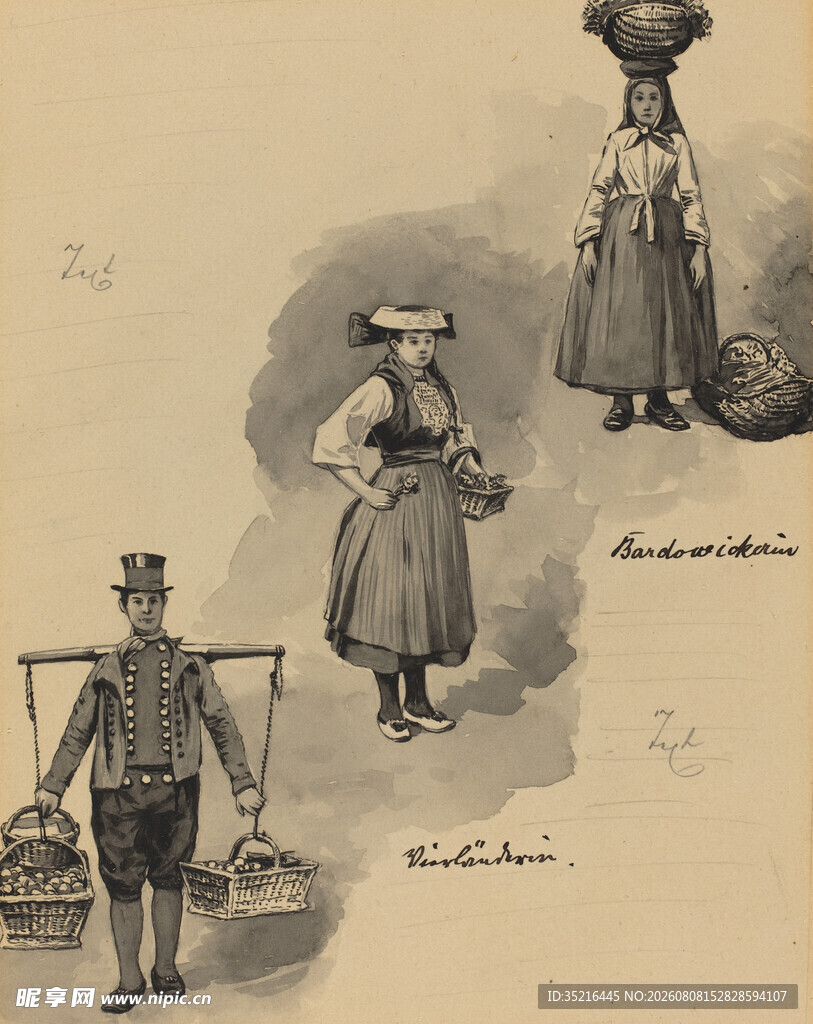 Text
Bardowickerin
Text
Vierländerin.
昵享网 www.nipic.cn
ID:35216445 NO:20260808152828594107